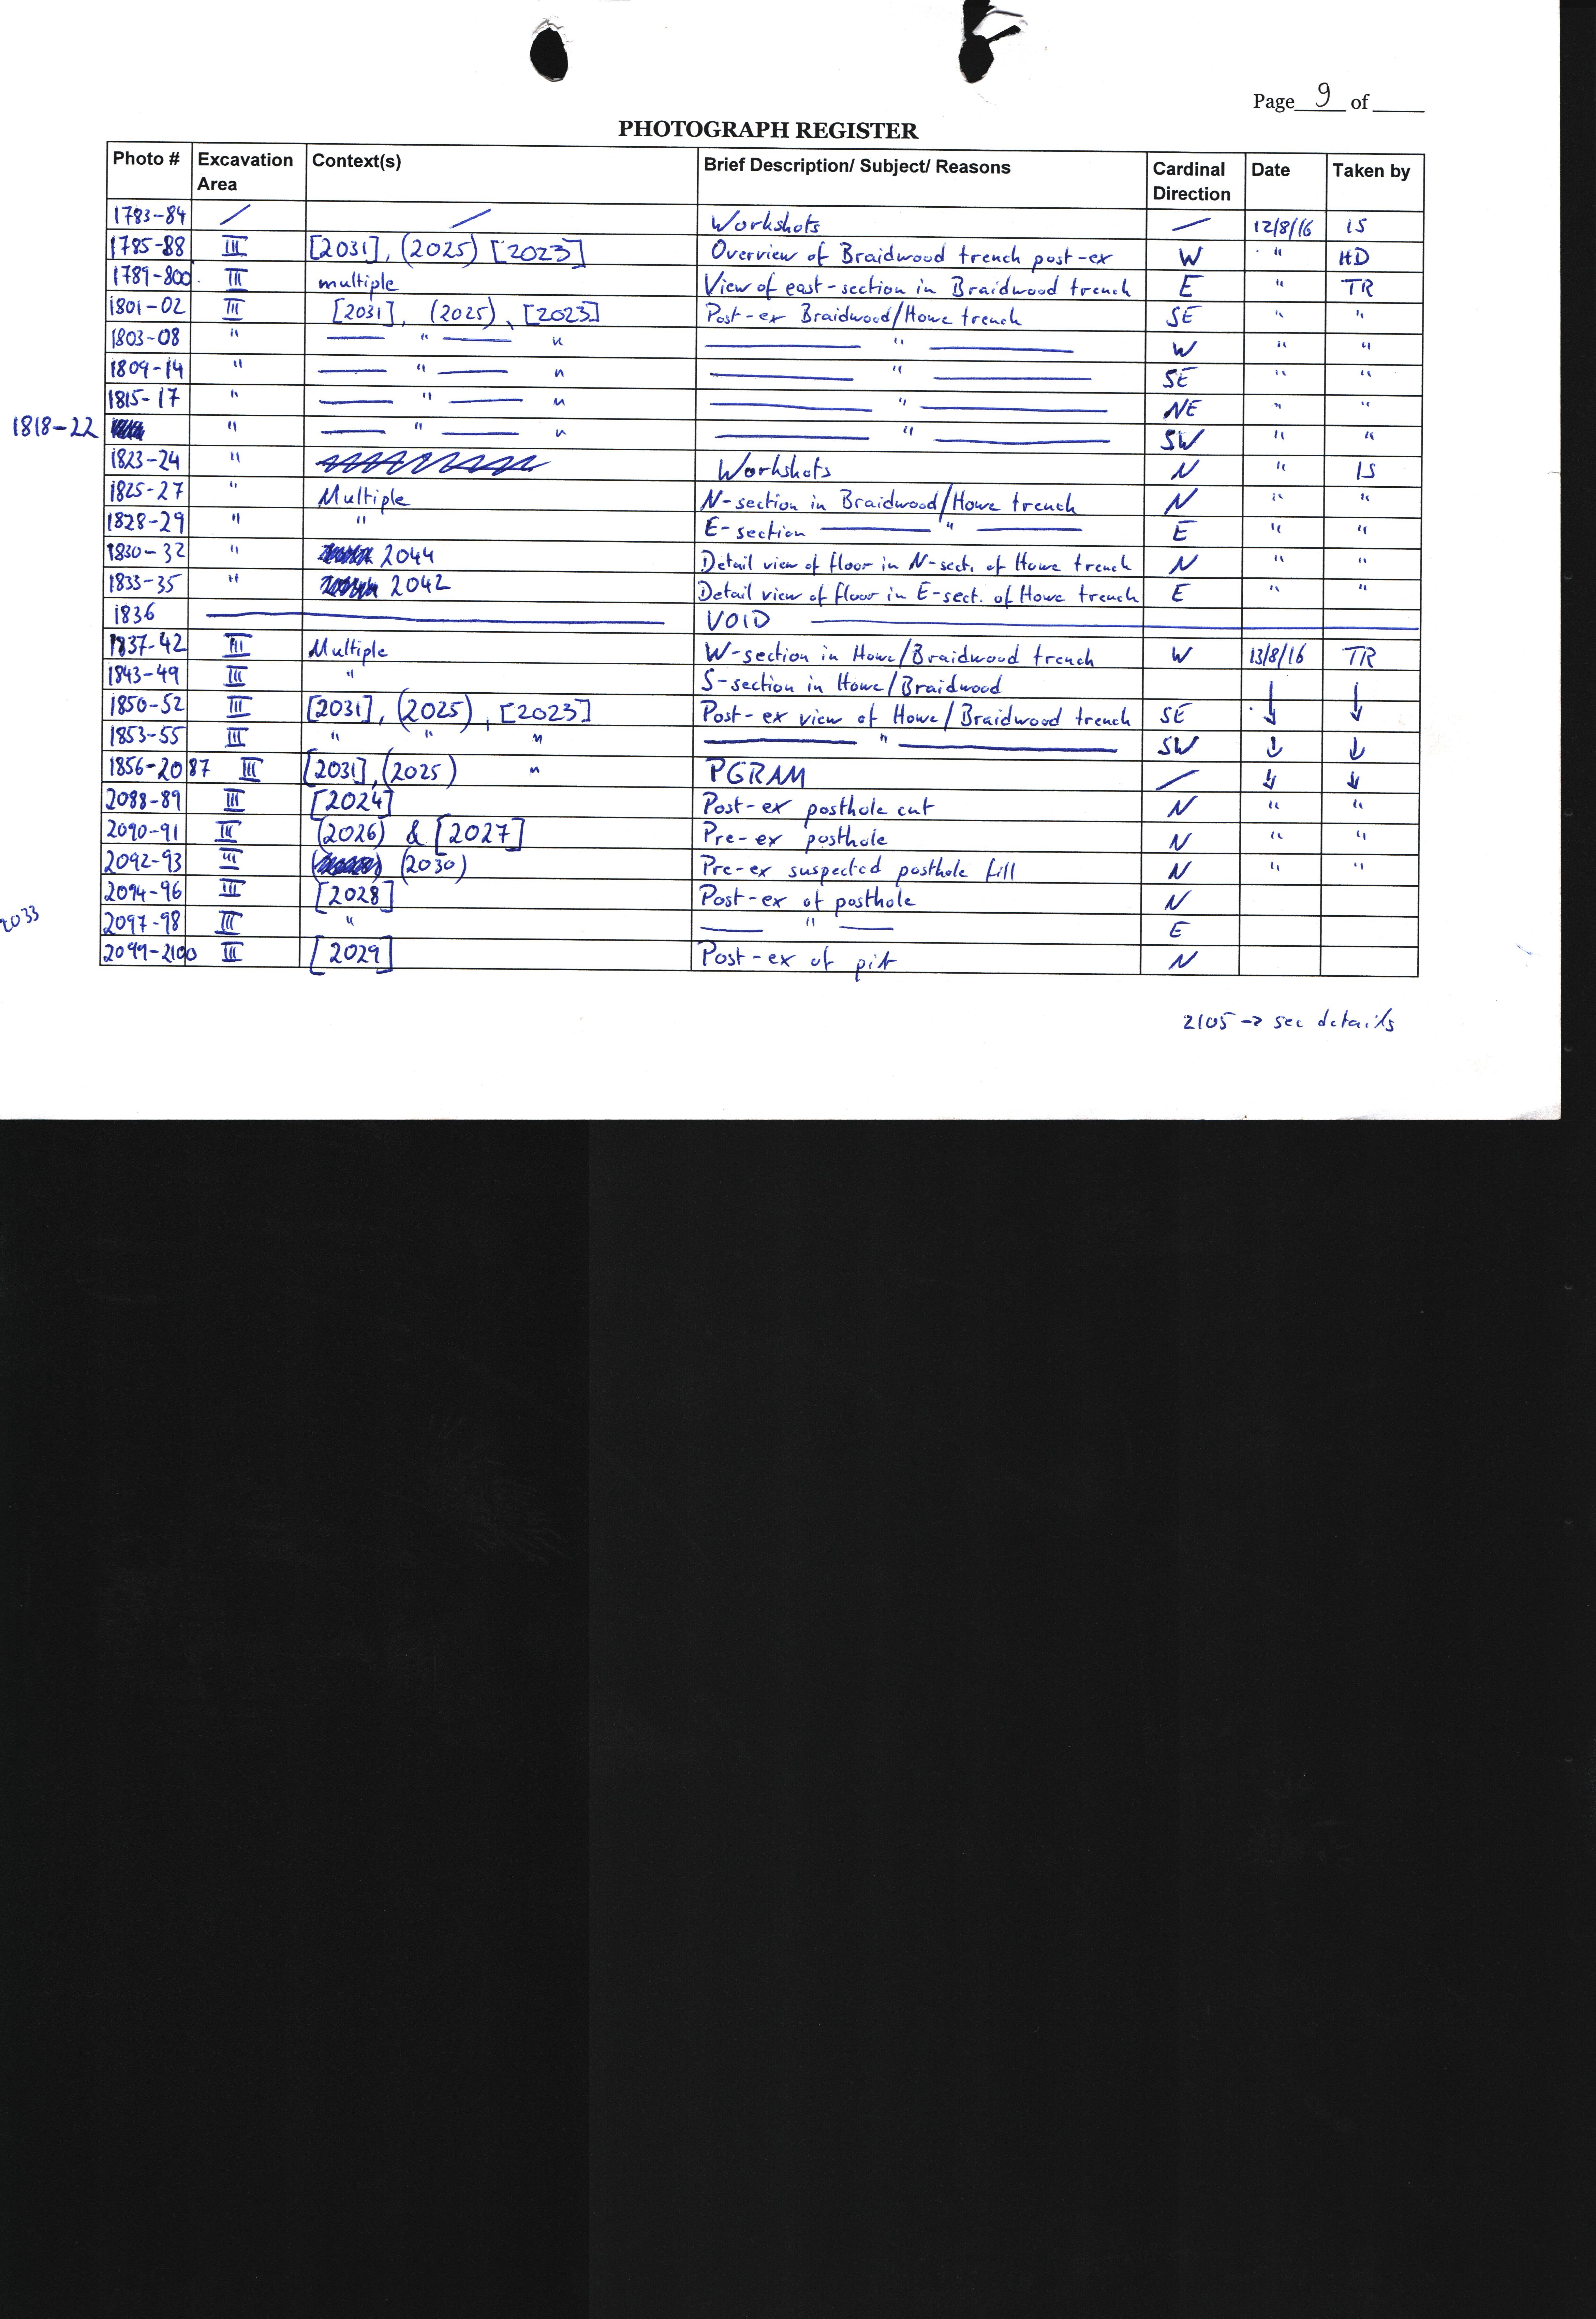 Page 9 of
PHOTOGRAPH REGISTER
Photo # Excavation Area Context(s) Brief Description/ Subject/ Reasons Cardinal Direction Date Taken by
1783-84 / / Workshots — 12/8/16 IS
1785-88 III [2031], (2025) [2023] Overview of Braidwood trench post-ex W " HD
1789-800 III multiple View of east-section in Braidwood trench E " TR
1801-02 III [2031], (2025), [2023] Post-ex Braidwood/Howe trench SE " "
1803-08 " — " — " — " — W " "
1809-14 " — " — " — " — SE " "
1815-17 " — " — " — " — NE " "
1818-22 " — " — " — " — SW " "
1823-24 " Workshots N " IS
1825-27 " Multiple N-section in Braidwood/Howe trench N " "
1828-29 " " E-section — " — E " "
1830-32 " 2044 Detail view of floor in N-sect. of Howe trench N " "
1833-35 " 2042 Detail view of floor in E-sect. of Howe trench E " "
1836 — VOID —
1837-42 III Multiple W-section in Howe/Braidwood trench W 13/8/16 TR
1843-49 III " S-section in Howe/Braidwood ↓ ↓
1850-52 III [2031], (2025), [2023] Post-ex view of Howe/Braidwood trench SE
1853-55 III " " " — " — SW ↓ ↓
1856-2087 III [2031], (2025) " PGRAM / ↓ ↓
2088-89 III [2024] Post-ex posthole cut N " "
2090-91 III (2026) & [2027] Pre-ex posthole N " "
2092-93 III (2030) Pre-ex suspected posthole fill N " "
2094-96 III [2028] Post-ex of posthole N
2033
2097-98 III " — " — E
2099-2100 III [2029] Post-ex of pit N
2105 → see details